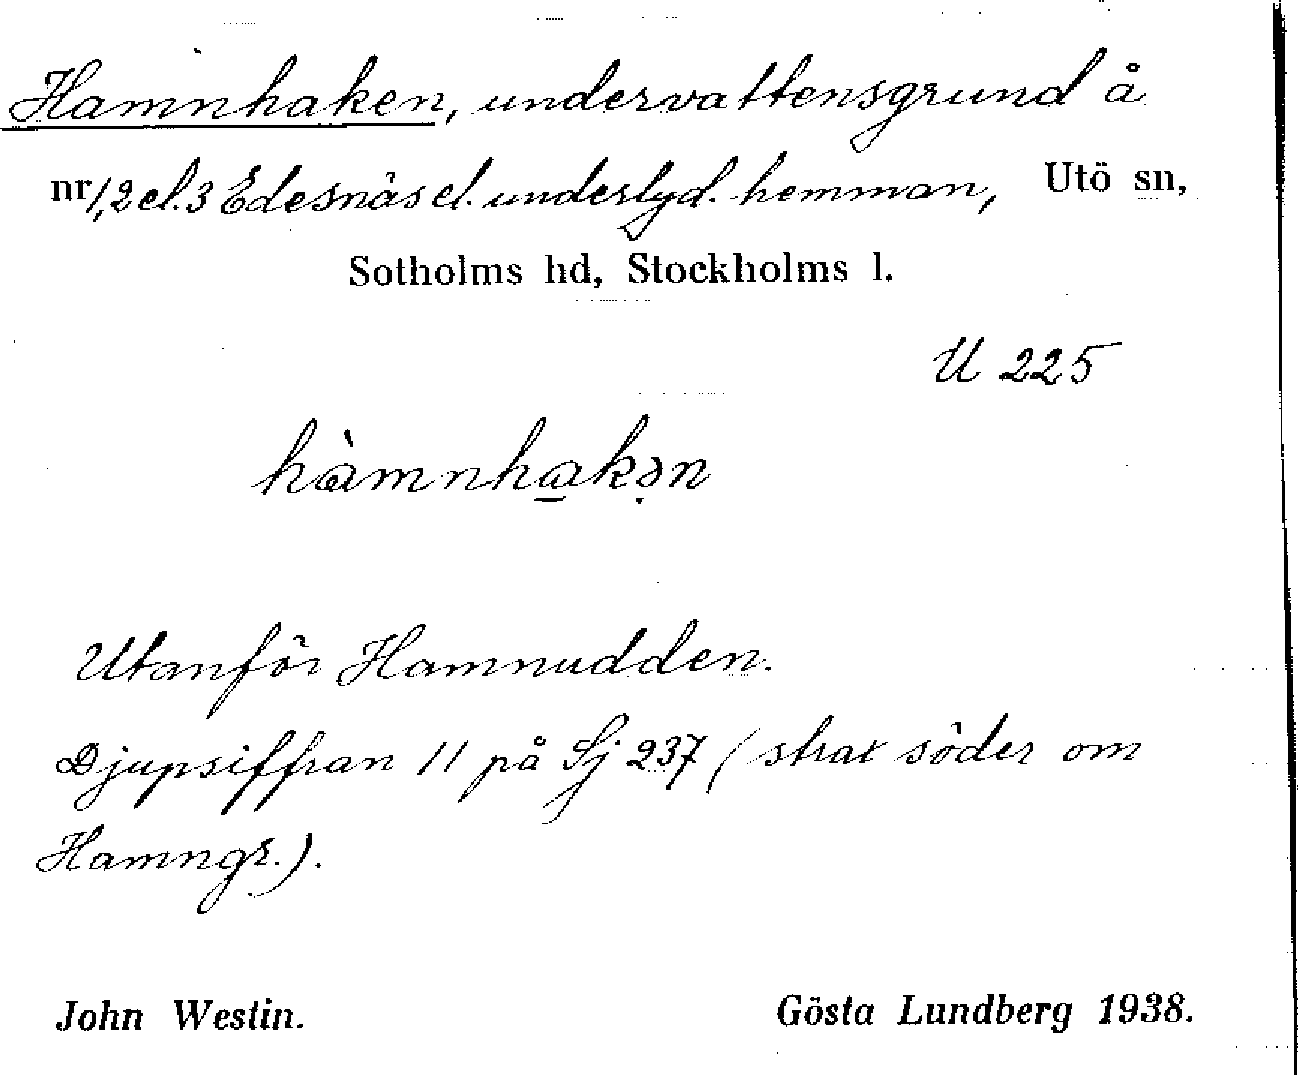 Hamnhaken, undervattensgrund å
nr 1, 2 el. 3 Edesnäs el. underlyd. hemman, Utö sn,
Sotholms hd, Stockholms l.
U 225
hàmnha̲kə̣n
Utanför Hamnudden.
Djupsiffran 11 på Sj 237 (strax söder om
Hamngr.).
John Westin. Gösta Lundberg 1938.